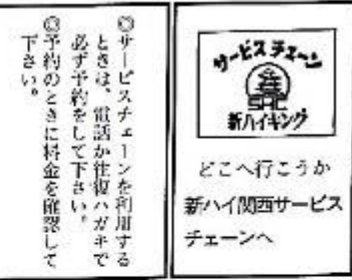 サービスチェーン
SHC
新ハイキング
どこへ行こうか
新ハイ関西サービス
チェーンへ
◎サービスチェーンを利用する
ときは、電話か往復ハガキで
必ず予約をして下さい。
◎予約のときに料金を確認して
下さい。